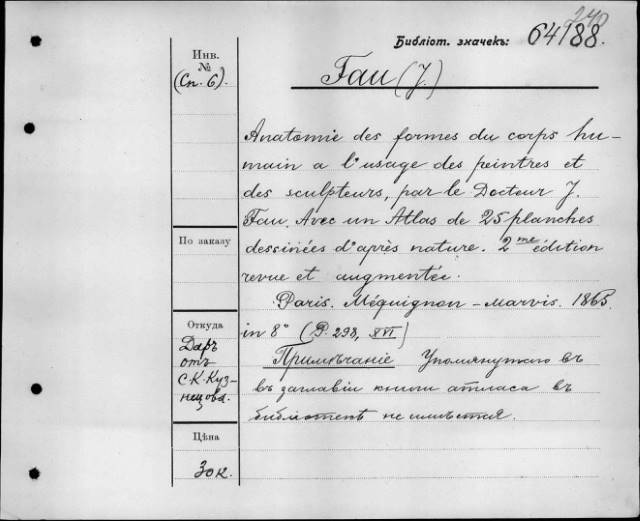 Библіот. значекъ: 64188.
240
Инв.
№
(Сп. 6).
Fau (J.)
Anatomie des formes du corps hu-
main a l'usage des peintres et
des sculpteurs, par le Docteur J.
Fau. Avec un Atlas de 25 planches
dessinées d'après nature. 2me édition
revue et augmentée.
Paris. Méquignon-Marvis. 1865.
in 8° (P. 298, XVI.)
Примѣчаніе Упомянутаго въ
въ заглавіи книги атласа въ
библіотекѣ не имѣется.
По заказу
Откуда
Даръ
отъ
С.К. Куз-
нецова.
Цѣна
30 к.